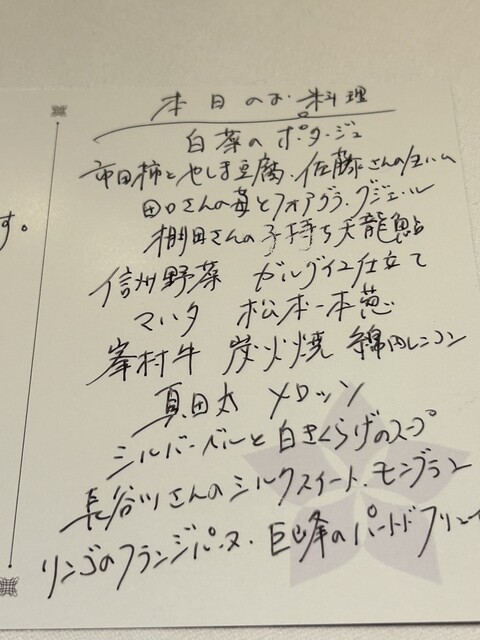 本日のお料理
白菜のポタージュ
市田柿とやしま豆腐・佐藤さんの生ハム
田口さんの苺とフォアグラ・グジェール
棚田さんの子持ち天龍鮎
信州野菜 ガルグイユ仕立て
マハタ 松本一本葱
峯村牛 炭火焼 綿内レンコン
真田丸 メロッソ
シルバーベルと白きくらげのスープ
長谷川さんのシルクスイート・モンブラン
リンゴのフランジパーヌ・巨峰のパートドフリュイ
す。